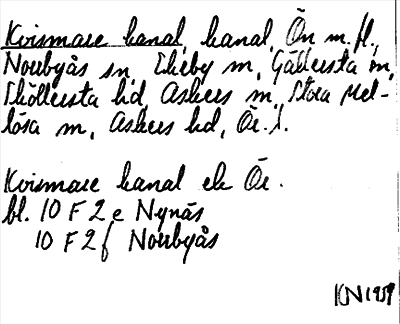 Kvismare kanal, kanal, Ön m.fl.,
Norrbyås sn, Ekeby m, Gällersta m,
Sköllersta hd, Askers m, Stora Mel-
lösa m, Askers hd, Ör. l.
Kvismare kanal ek Ör.
bl. 10 F 2 e Nynäs
10 F 2 f Norrbyås
KN 1959